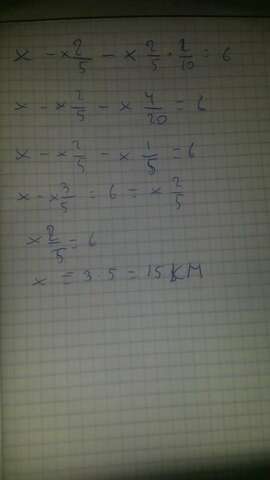 x - x 2/5 - x 2/5 · 2/10 = 6
x - x 2/5 - x 4/20 = 6
x - x 2/5 - x 1/5 = 6
x - x 3/5 = 6 = x 2/5
x 2/5 = 6
x = 3 · 5 = 15 KM